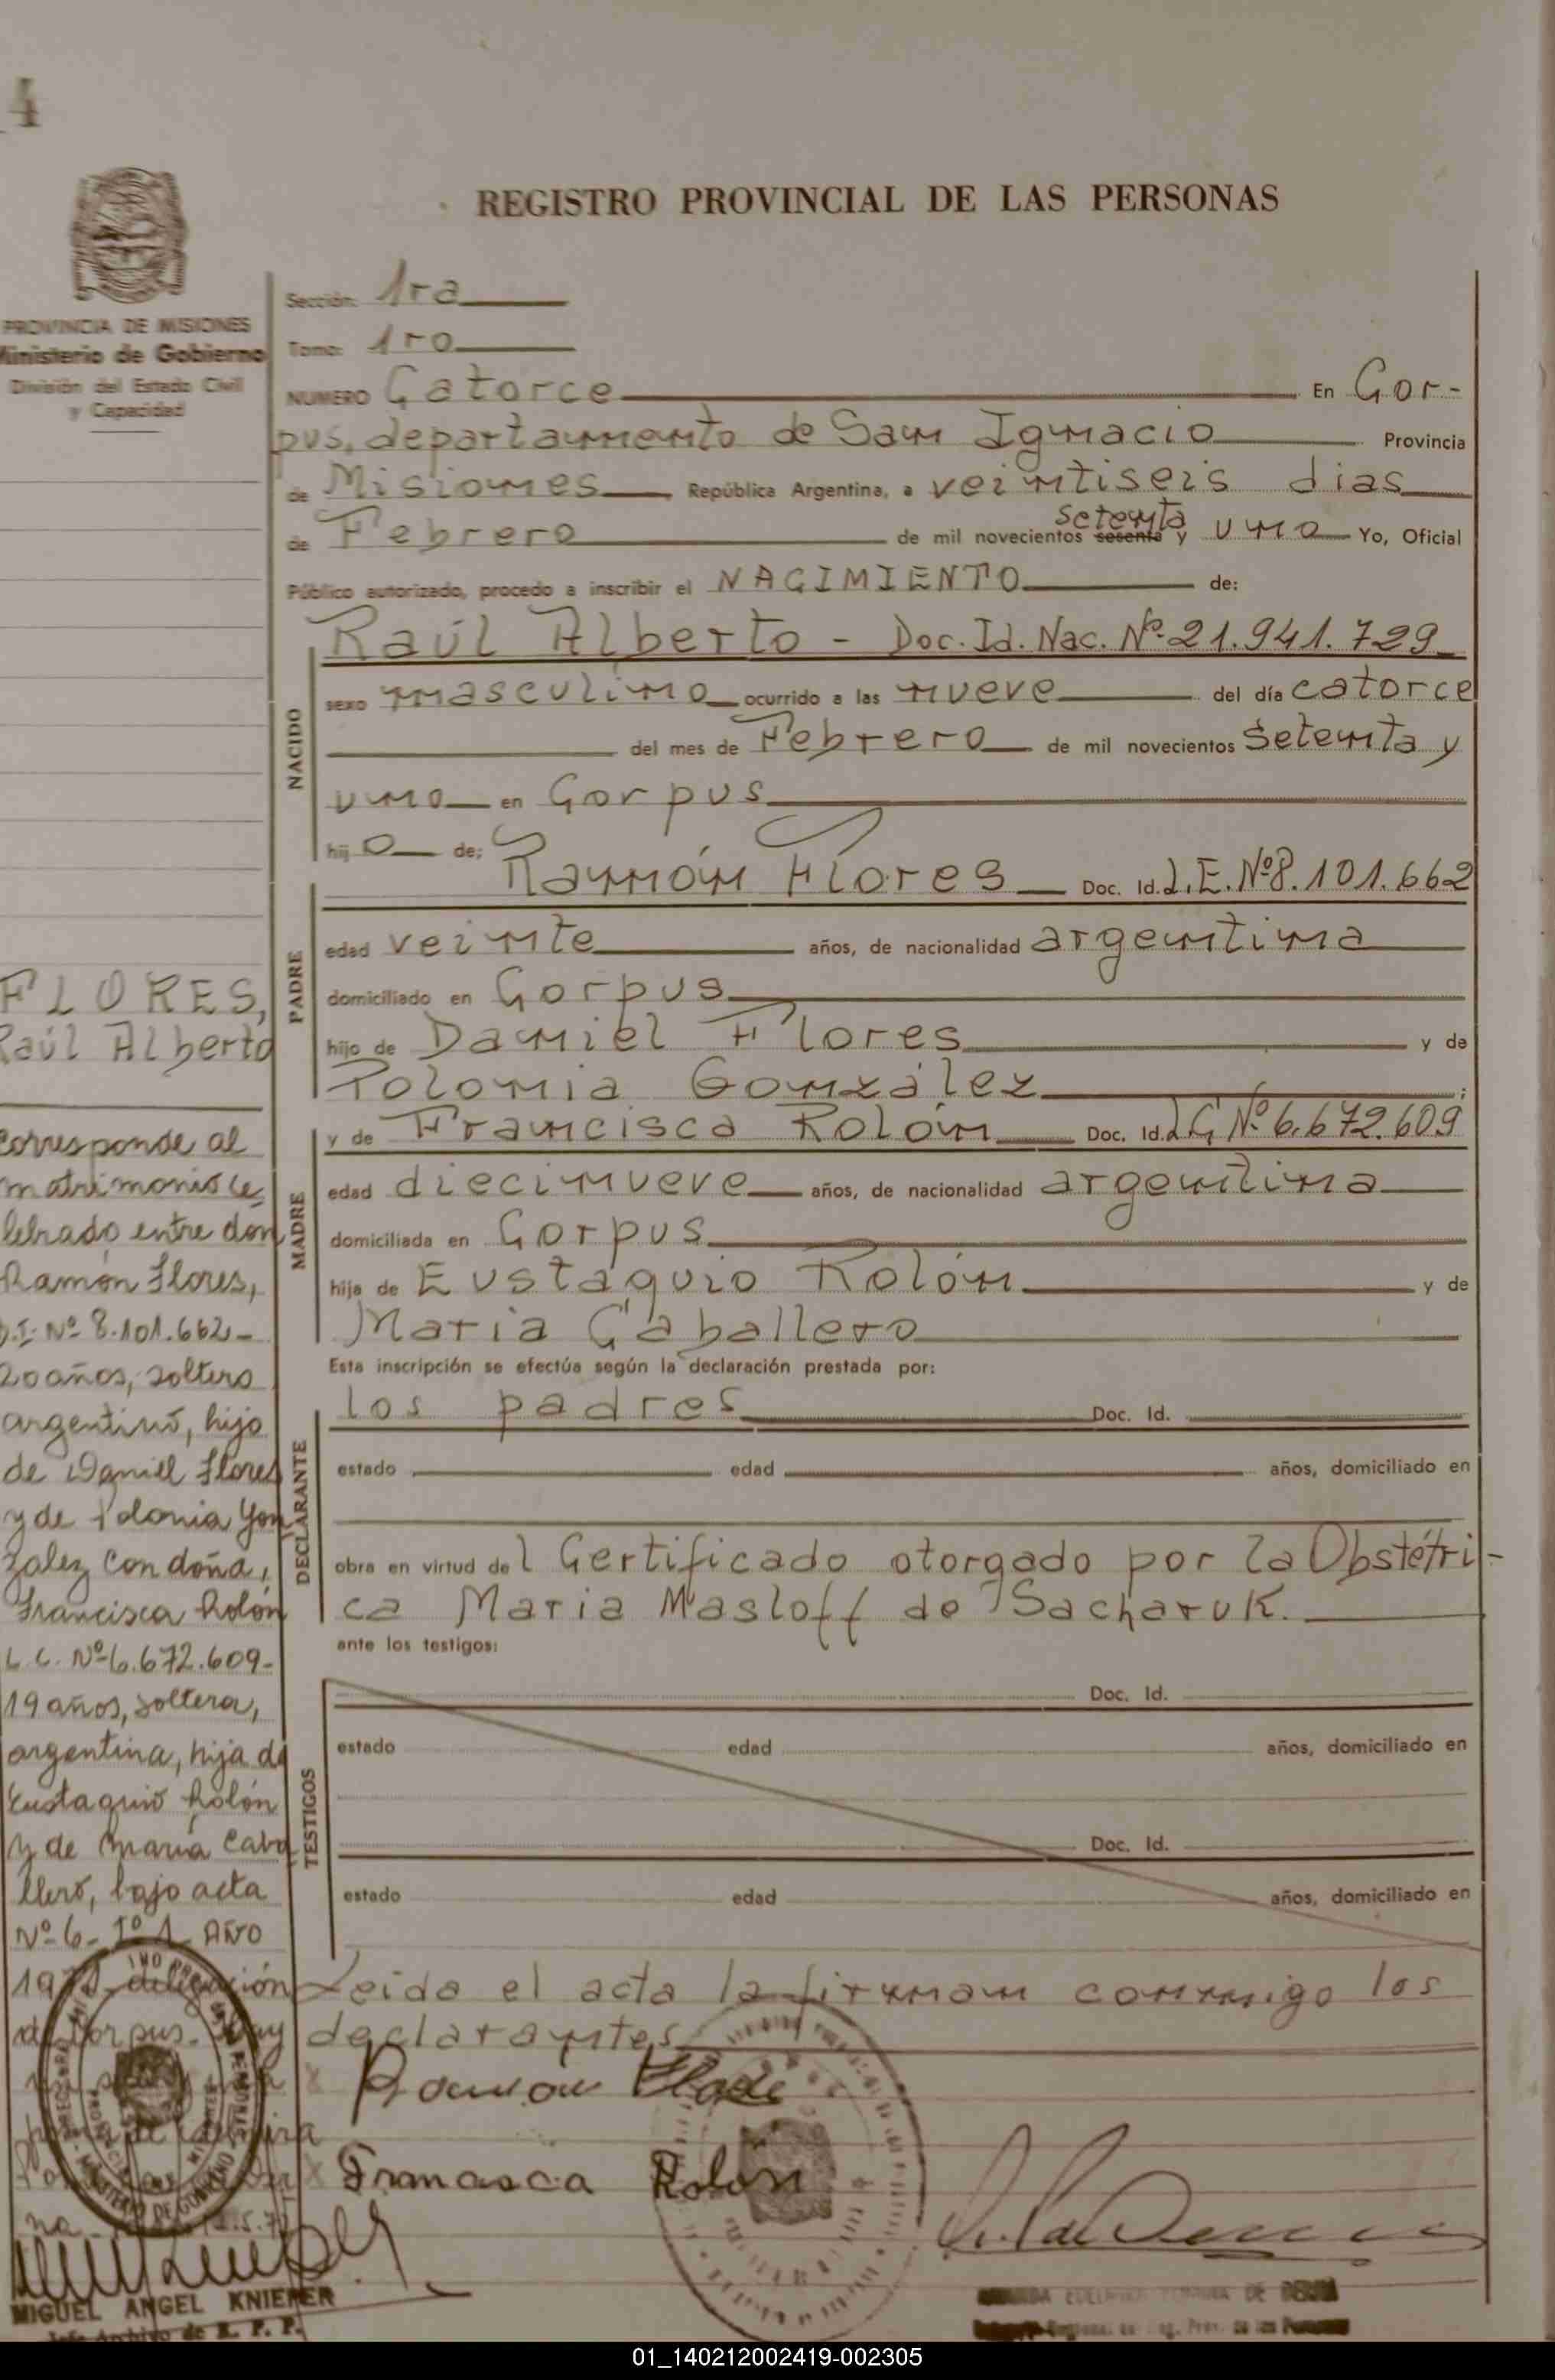 4
REGISTRO PROVINCIAL DE LAS PERSONAS
PROVINCIA DE MISIONES
Ministerio de Gobierno
División del Estado Civil
y Capacidad
Sección: 1ra
Tomo: 1ro
NUMERO Catorce En Cor-
pus, departamento de San Ignacio Provincia
de Misiones República Argentina, a veintiseis dias
de Febrero de mil novecientos sesenta setenta y uno Yo, Oficial
Público autorizado, procedo a inscribir el NACIMIENTO de:
Raúl Alberto - Doc. Id. Nac. Nº 21.941.729
NACIDO
sexo masculino ocurrido a las nueve del día catorce
del mes de Febrero de mil novecientos setenta y
uno en Corpus
hijo de:
Ramón Flores Doc. Id. L.E. Nº 8.101.662
PADRE
edad veinte años, de nacionalidad argentina
domiciliado en Corpus
hijo de Daniel Flores y de
Polonia González ;
MADRE
y de Francisca Rolón Doc. Id. L C Nº 6.672.609
edad diecinueve años, de nacionalidad argentina
domiciliada en Corpus
hija de Eustaquio Rolón y de
Maria Caballero
Esta inscripción se efectúa según la declaración prestada por:
DECLARANTE
los padres Doc. Id.
estado edad años, domiciliado en
obra en virtud del Certificado otorgado por la Obstétri-
ca Maria Masloff de Sacharuk.
ante los testigos:
TESTIGOS
Doc. Id.
estado edad años, domiciliado en
Doc. Id.
estado edad años, domiciliado en
Leida el acta la firman conmigo los
declarantes
Ramon
Francisca Rolón
FLORES,
Raúl Alberto
Corresponde al
matrimonio ce
lebrado entre don
Ramón Flores,
D.I. Nº 8.101.662-
20 años, soltero
argentino, hijo
de Daniel Flores
y de Polonia Gon
zalez con doña,
Francisca Rolón
L.C. Nº 6.672.609-
19 años, soltera,
argentina, hija de
Eustaquio Rolón
y de María Caba
llero, bajo acta
Nº 6- Tº 1 AÑO
1971 delegación
de Corpus.
MIGUEL ANGEL KNIEPER
Jefe Archivo de R. P. P.
DE
01_140212002419-002305